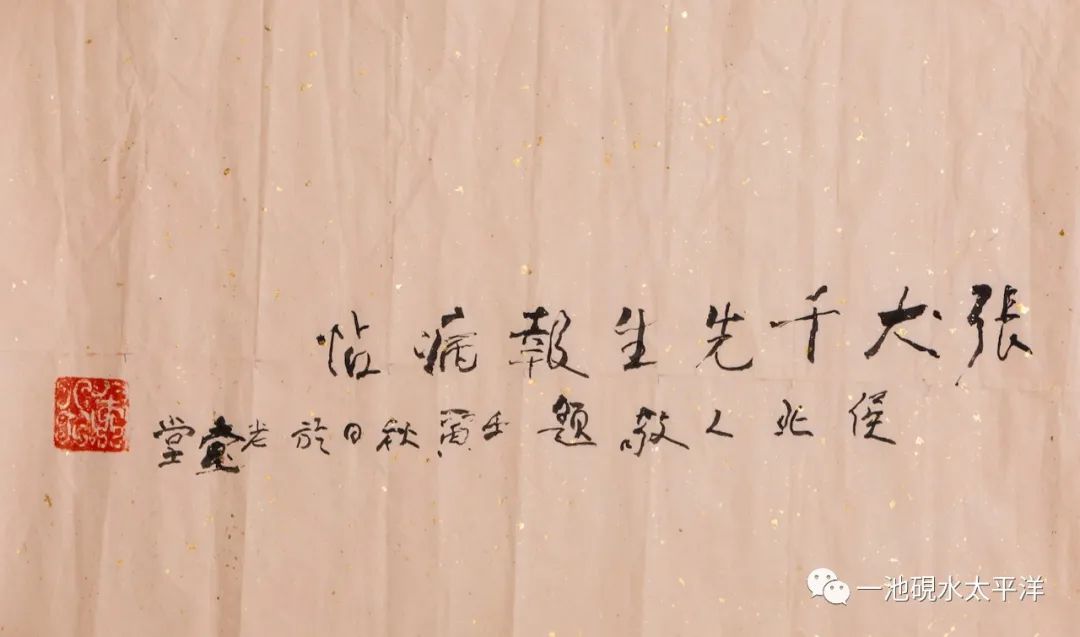 張大千先生報病帖
侯北人敬題壬寅秋日於老堂
一池硯水太平洋